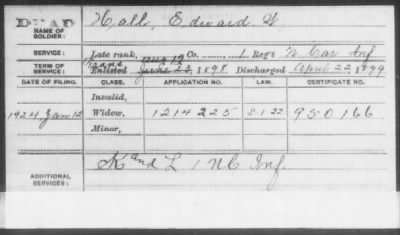 DEAD
NAME OF SOLDIER: Hall, Edward W
SERVICE: Late rank, Co. 1 Reg't N Car Inf
TERM OF SERVICE: Enlisted June 23, 1898 Discharged April 22, 1899
DATE OF FILING. CLASS. APPLICATION NO. LAW. CERTIFICATE NO.
Invalid,
1924 Jan 12 Widow, 1214225 S-1-22 950166
Minor,
ADDITIONAL SERVICES: K and L 1 NC Inf.